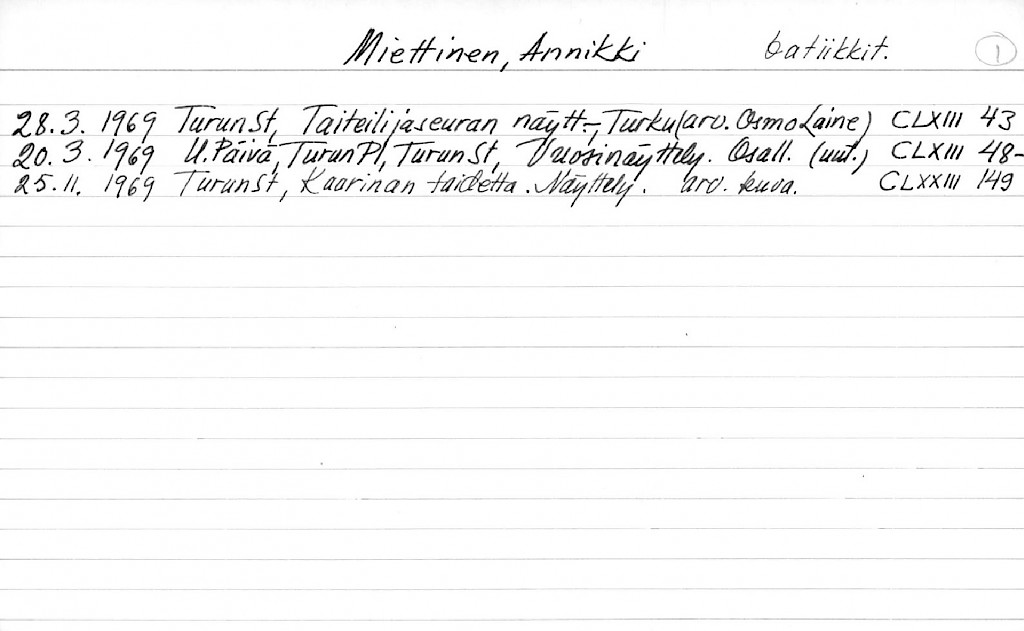 Miettinen, Annikki batiikkit. 1
28.3. 1969 TurunSt, Taiteilijaseuran näytt.-, Turku (arv. Osmo Laine) CLXIII 43
20.3. 1969 U.Päivä, TurunPl, TurunSt, Vuosinäyttely. Osall. (uut.) CLXIII 48-
25.11. 1969 TurunSt, Kaarinan taidetta. Näyttely. arv. kuva. CLXXIII 149